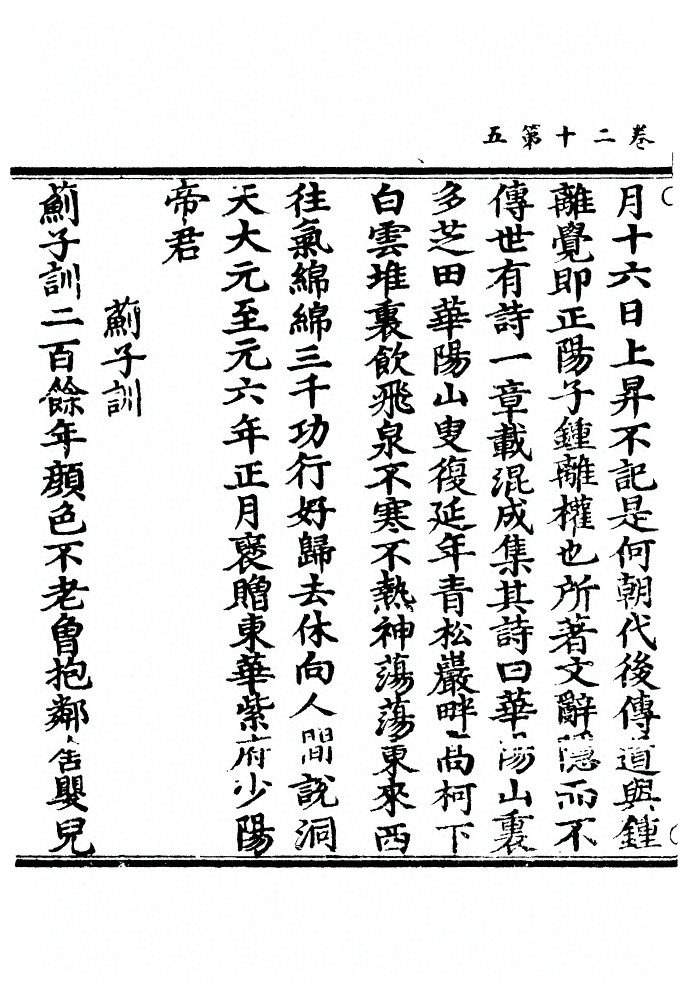 卷二十第五
月十六日上昇不記是何朝代後傳道與鍾
離覺即正陽子鍾離權也所著文辭隱而不
傳世有詩一章載混成集其詩曰華陽山裏
多芝田華陽山叟復延年青松巖畔高柯下
白雲堆裏飲飛泉不寒不熱神蕩蕩東來西
往氣綿綿三千功行好歸去休向人間說洞
天大元至元六年正月褒贈東華紫府少陽
帝君
薊子訓
薊子訓二百餘年顏色不老曾抱鄰舍嬰兒